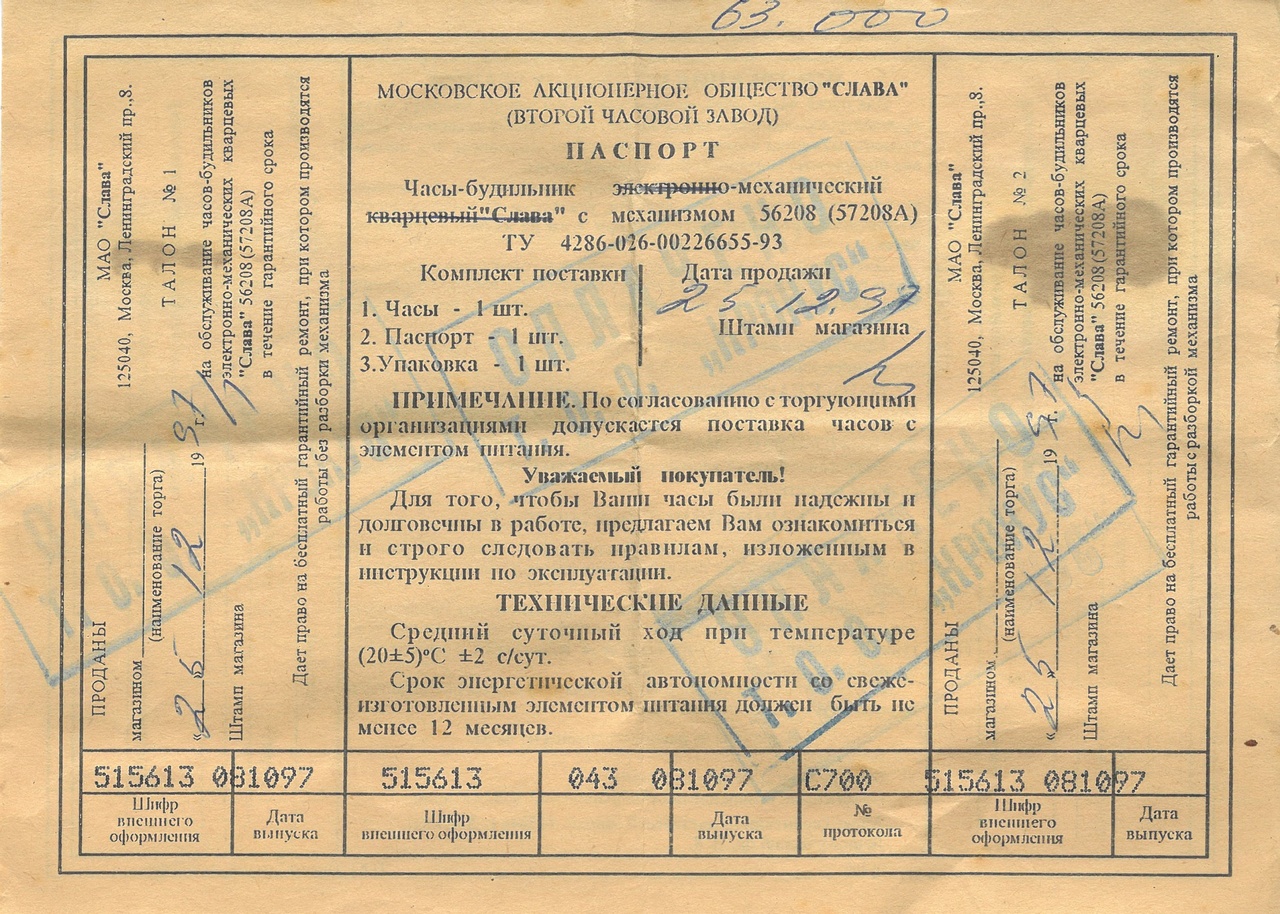 63. 000
МАО "Слава"
125040, Москва, Ленинградский пр.,8.
ТАЛОН № 1
на обслуживание часов-будильников
электронно-механических кварцевых
"Слава" 56208 (57208А)
в течение гарантийного срока
ПРОДАНЫ
магазином
(наименование торга)
"25" 12 1997 г.
Штамп магазина
Дает право на бесплатный гарантийный ремонт, при котором производятся
работы без разборки механизма
МОСКОВСКОЕ АКЦИОНЕРНОЕ ОБЩЕСТВО "СЛАВА"
(ВТОРОЙ ЧАСОВОЙ ЗАВОД)
ПАСПОРТ
Часы-будильник электронно-механический
кварцевый "Слава" с механизмом 56208 (57208А)
ТУ 4286-026-00226655-93
Комплект поставки
1. Часы - 1 шт.
2. Паспорт - 1 шт.
3.Упаковка - 1 шт.
Дата продажи
25 12. 97
Штамп магазина
ПРИМЕЧАНИЕ. По согласованию с торгующими
организациями допускается поставка часов с
элементом питания.
Уважаемый покупатель!
Для того, чтобы Ваши часы были надежны и
долговечны в работе, предлагаем Вам ознакомиться
и строго следовать правилам, изложенным в
инструкции по эксплуатации.
ТЕХНИЧЕСКИЕ ДАННЫЕ
Средний суточный ход при температуре
(20±5)°С ±2 с/сут.
Срок энергетической автономности со свеже-
изготовленным элементом питания должен быть не
менее 12 месяцев.
МАО "Слава"
125040, Москва, Ленинградский пр.,8.
ТАЛОН № 2
на обслуживание часов-будильников
электронно-механических кварцевых
"Слава" 56208 (57208А)
в течение гарантийного срока
ПРОДАНЫ
магазином
(наименование торга)
"25" 12 1997 г.
Штамп магазина
Дает право на бесплатный гарантийный ремонт, при котором производятся
работы с разборкой механизма
515613 081097 515613 043 081097 С700 515613 081097
Шифр внешнего оформления
Дата выпуска
Шифр внешнего оформления
Дата выпуска
№ протокола
Шифр внешнего оформления
Дата выпуска